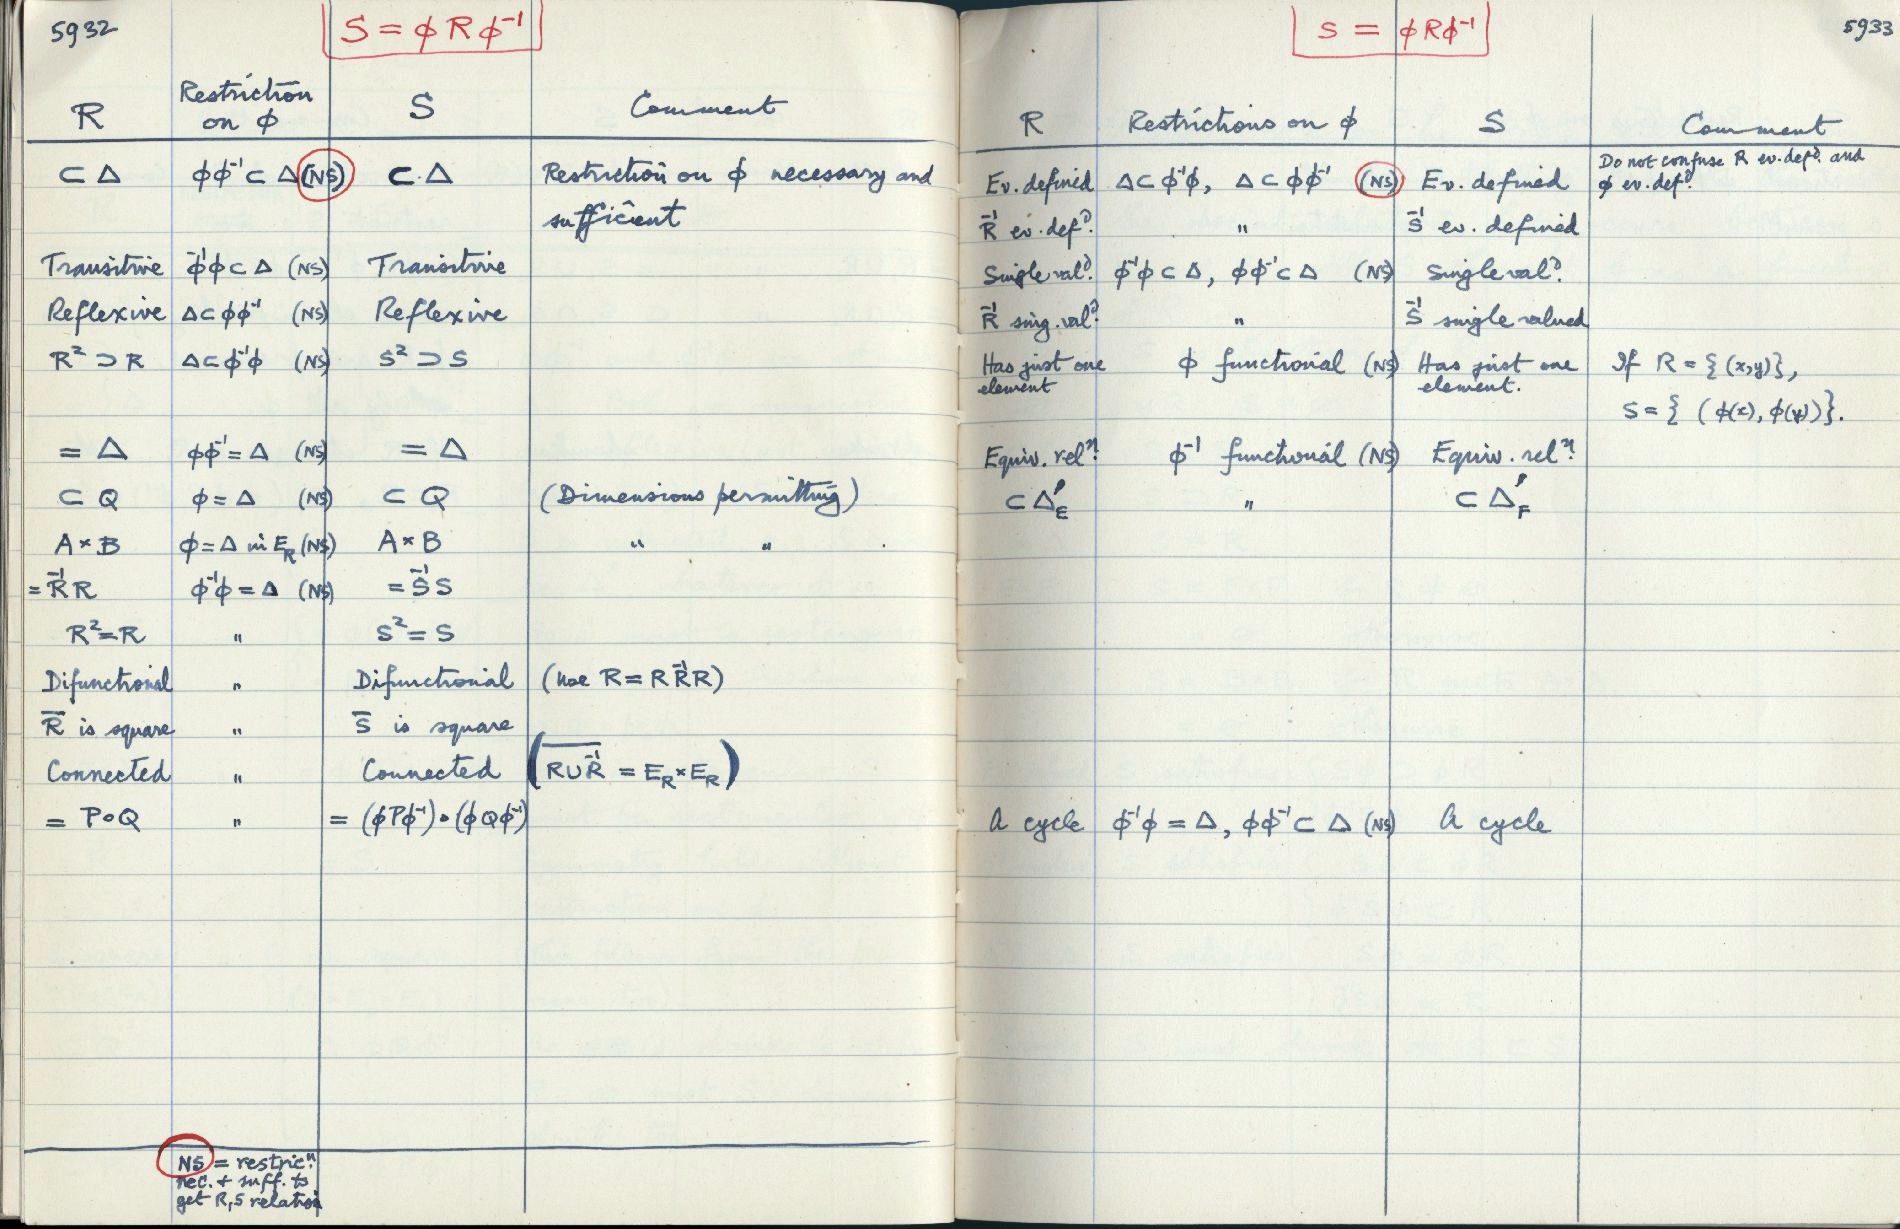 5932
S = ϕRϕ⁻¹
R | Restriction on ϕ | S | Comment
⊂ Δ | ϕϕ⁻¹ ⊂ Δ (NS) | ⊂ Δ | Restriction on ϕ necessary and
sufficient
Transitive | ϕ⁻¹ϕ ⊂ Δ (NS) | Transitive
Reflexive | Δ ⊂ ϕϕ⁻¹ (NS) | Reflexive
R² ⊃ R | Δ ⊂ ϕ⁻¹ϕ (NS) | S² ⊃ S
= Δ | ϕϕ⁻¹ = Δ (NS) | = Δ
⊂ Q | ϕ = Δ (NS) | ⊂ Q | (Dimensions permitting)
A × B | ϕ = Δ in E_R (NS) | A × B | " "
= R⁻¹R | ϕ⁻¹ϕ = Δ (NS) | = S⁻¹S
R² = R | " | S² = S
Difunctional | " | Difunctional | (use R = RR⁻¹R)
R̅ is square | " | S̅ is square
Connected | " | Connected | (\overline{R ∪ R⁻¹} = E_R × E_R)
= P∘Q | " | = (ϕPϕ⁻¹)∘(ϕQϕ⁻¹)
NS = restricⁿ.
nec. + suff. to
get R,S relation
5933
S = ϕRϕ⁻¹
R | Restrictions on ϕ | S | Comment
Ev. defined | Δ ⊂ ϕ⁻¹ϕ, Δ ⊂ ϕϕ⁻¹ (NS) | Ev. defined | Do not confuse R ev. defᵈ. and
ϕ ev. defᵈ.
R⁻¹ ev. defᵈ. | " | S⁻¹ ev. defined
Single valᵈ. | ϕ⁻¹ϕ ⊂ Δ, ϕϕ⁻¹ ⊂ Δ (NS) | Single valᵈ.
R⁻¹ sing. valᵈ. | " | S⁻¹ single valued
Has just one | ϕ functional (NS) | Has just one | If R = {(x,y)},
element | element.
S = { (ϕ(x), ϕ(y)) }.
Equiv. relⁿ. | ϕ⁻¹ functional (NS) | Equiv. relⁿ.
⊂ Δ'_E | " | ⊂ Δ'_F
A cycle | ϕ⁻¹ϕ = Δ, ϕϕ⁻¹ ⊂ Δ (NS) | A cycle